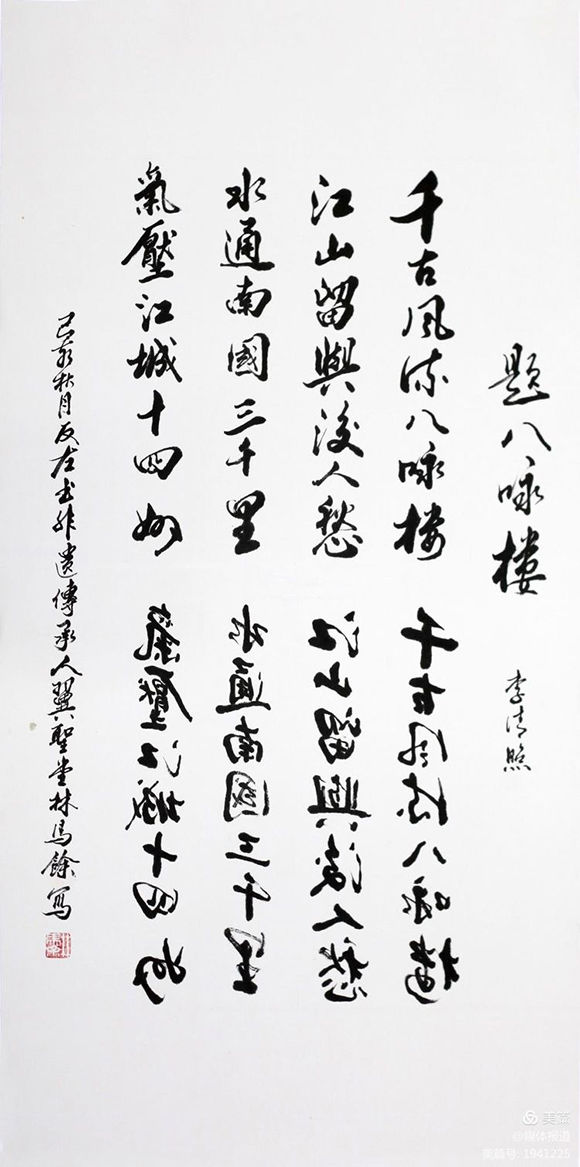 題八咏樓 李清照
千古風流八咏楼 千古風流八咏楼
江山留與後人愁 江山留與後人愁
水通南國三千里 水通南國三千里
氣壓江城十四州 氣壓江城十四州
己亥秋月反左书非遺傳承人翼聖堂林馬餘寫
美篇
@媒体报道
美篇号: 1941225